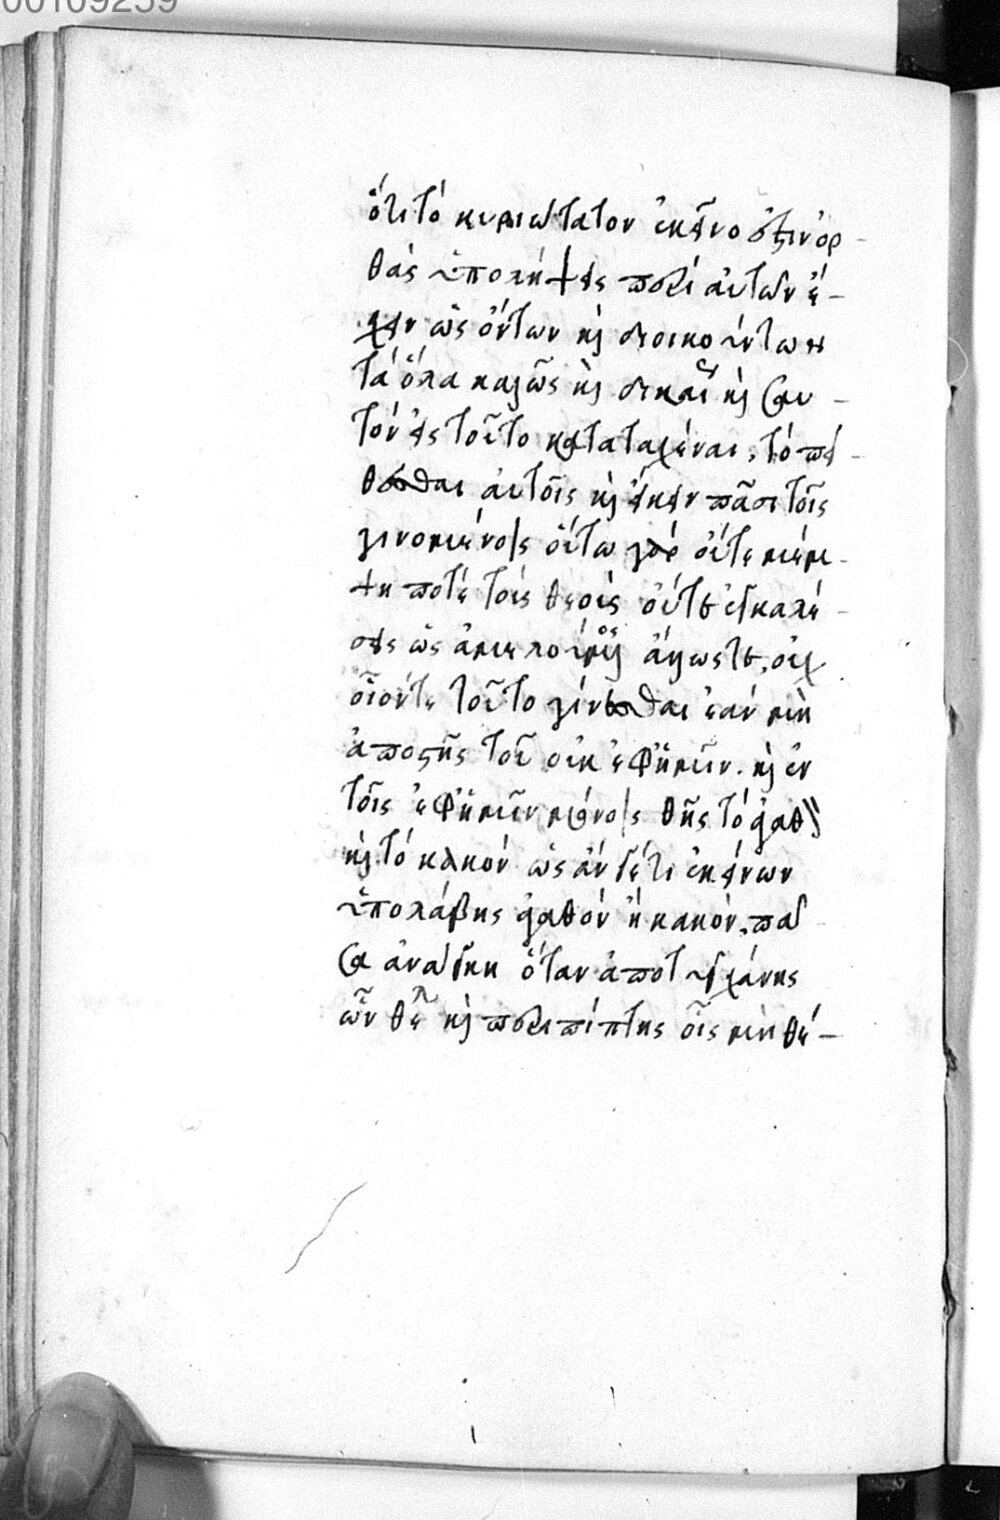 00109239
ὅτι τὸ κυριώτατον ἐκεῖνο ἐστὶν ὀρ-
θὰς ὑπολήψεις περὶ αὐτῶν ἔ-
χειν ὡς ὄντων καὶ διοικούντων
τὰ ὅλα καλῶς καὶ δικαίως καὶ σαυ-
τὸν εἰς τοῦτο καταταχέναι, τὸ πεί-
θεσθαι αὐτοῖς καὶ εἴκειν πᾶσι τοῖς
γινομένοις οὕτω γὰρ οὔτε μέμ-
ψη ποτὲ τοῖς θεοῖς οὔτε ἐγκαλέ-
σεις ὡς ἀμελούμενος ἄλλως τε, οὐχ
οἷόν τε τοῦτο γίνεσθαι ἐὰν μὴ
ἀποστῇς τοῦ οὐκ ἐφ' ἡμῖν. καὶ ἐν
τοῖς ἐφ' ἡμῖν μόνοις θῇς τὸ ἀγαθὸν
καὶ τὸ κακόν ὡς ἄν γέ τι ἐκείνων
ὑπολάβῃς ἀγαθὸν ἢ κακόν, πᾶ
σα ἀνάγκη ὅταν ἀποτυγχάνῃς
ὧν θέλεις καὶ περιπίπτῃς οἷς μὴ θέ-